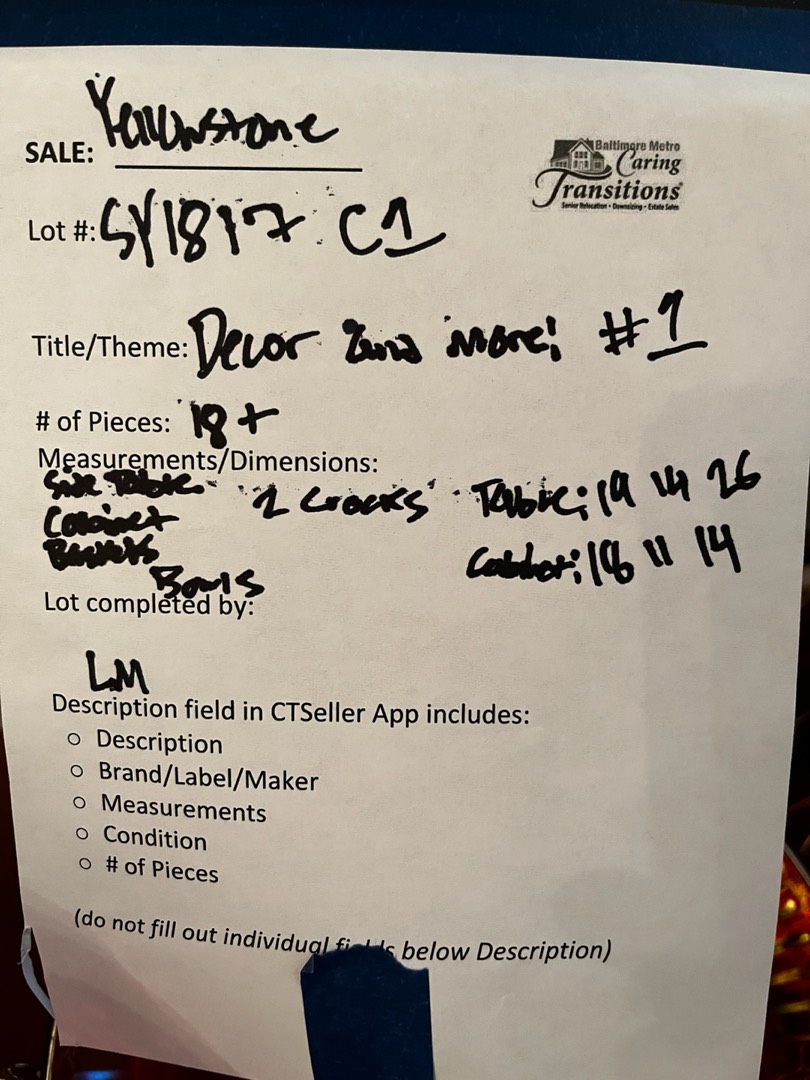 SALE: Yellowstone
Baltimore Metro
Caring
Transitions
Senior Relocation • Downsizing • Estate Sales
Lot #: SY1817 C1
Title/Theme: Decor and more! #1
# of Pieces: 18+
Measurements/Dimensions:
Side Table 2 Crocks Table: 19 14 26
Cabinet
Baskets Cabinet: 18 11 14
Bowls
Lot completed by:
LM
Description field in CTSeller App includes:
○ Description
○ Brand/Label/Maker
○ Measurements
○ Condition
○ # of Pieces
(do not fill out individual fields below Description)